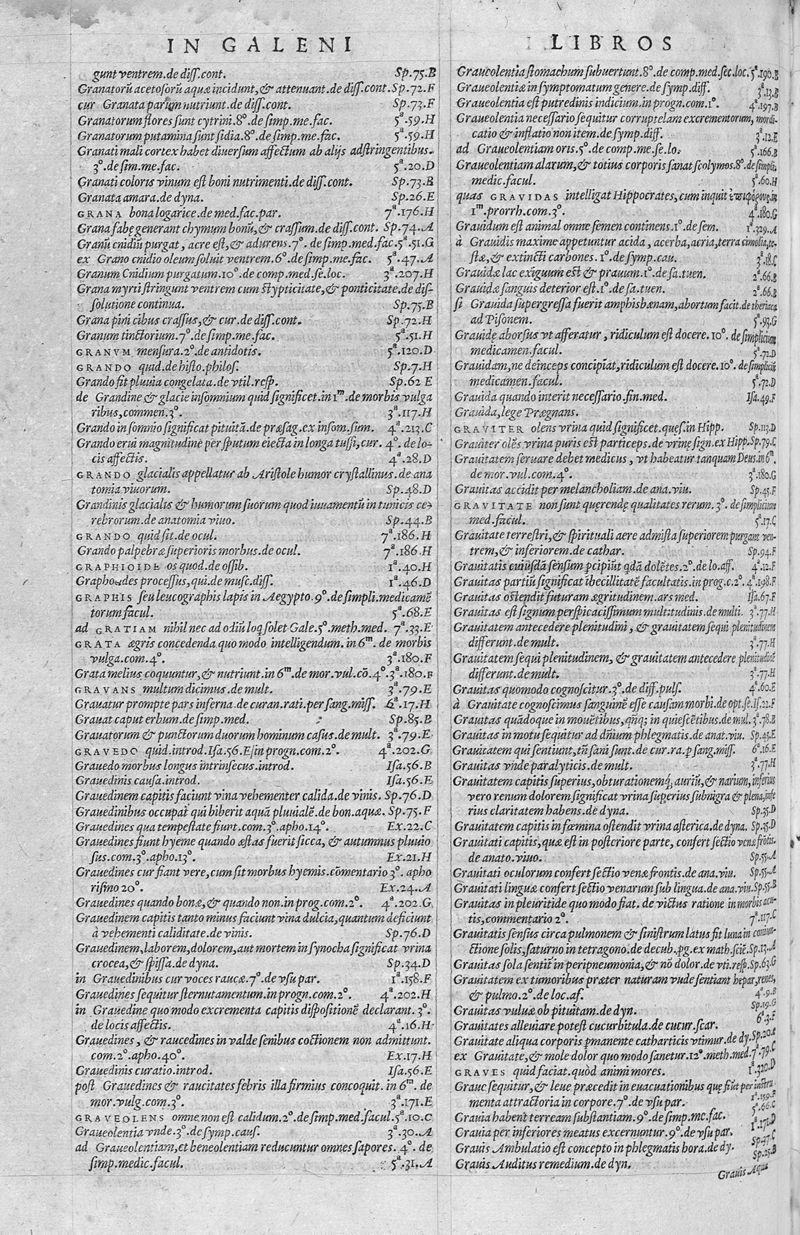 IN GALENI
gunt ventrem.de diss.cont. Sp.75.B
Granatorũ acetosorũ aquæ incidunt,& attenuant.de diss.cont. Sp.72.F
cur Granata parum nutriunt.de diss.cont. Sp.73.F
Granatorum flores sunt cytini.8°.de simp.me.fac. 5ª.59.H
Granatorum putamina sunt sidia.8°.de simp.me.fac. 5ª.59.H
Granati mali cortex habet diuersum affectum ab alijs adstringentibus.
3°.de sim.me.fac. 5ª.20.D
Granati coloris vinum est boni nutrimenti.de diss.cont. Sp.73.B
Granata amara.de dyna. Sp.26.E
GRANA bona logarice.de med.fac.par. 7ª.176.H
Grana fabę generant chymum bonũ,& crassum.de diss.cont. Sp.74.A
Granũ cnidiũ purgat, acre est,& adurens.7°.de simp.me.fac.5ª.51.G
ex Grano cnidio oleum soluit ventrem.6°.de simp.me.fac. 5ª.47.A
Granum Cnidium purgatum.10°.de comp.med.se.loc. 3ª.207.H
Grana myrti stringunt ventrem cum stypticitate,& ponticitate.de dis-
solutione continua. Sp.75.B
Grana pini cibus crassus,& cur.de diss.cont. Sp.72.H
Granum tinctorium.7°.de simp.me.fac. 5ª.51.H
GRANVM mensura.2°.de antidotis. 5ª.120.D
GRANDO quid.de histo.philos. Sp.7.H
Grando fit pluuia congelata.de vtil.resp. Sp.62 E
de Grandine & glacie insomnium quid significet.in 1ᵐ.de morbis vulga
ribus,commen.3°. 3ª.117.H
Grando in somnio significat pituitã.de præsag.ex insom.sum. 4ª.213.C
Grando erui magnitudine per sputum eiecta in longa tussi,cur.4°.de lo-
cis affectis. 4ª.28.D
GRANDO glacialis appellatur ab Aristole humor crystallinus.de ana
tomia viuorum. Sp.48.D
Grandinis glacialis & humorum suorum quod iuuamentũ in tunicis ce-
rebrorum.de anatomia viuo. Sp.44.B
GRANDO quid sit.de ocul. 7ª.186.H
Grando palpebræ superioris morbus.de ocul. 7ª.186 H
GRAPHIOIDE os quod.de ossib. 1ª.40.H
Graphoides processus,qui.de musc.diss. 1ª.46.D
GRAPHIS seu leucographis lapis in Aegypto.9°.de simpli.medicamẽ
torum facul. 5ª.68.E
ad GRATIAM nihil nec ad odiũ loq̃ solet Gale.5°.meth.med. 7ª.33.E
GRATA ægris concedenda quo modo intelligendum.in 6ᵐ.de morbis
vulga.com.4°. 3ª.180.F
Grata melius coquuntur,& nutriunt.in 6ᵐ.de mor.vul.cõ.4°.3ª.180.F
GRAVANS multum dicimus.de mult. 3ª.79.E
Grauatur prompte pars inferna.de curan.rati.per sang.miss. 6ª.17.H
Grauat caput erbum.de simp.med. Sp.85.B
Grauatorum & punctorum duorum hominum casus.de mult. 3ª.79.E
GRAVEDO quid.introd.Isa.56.E sin progn.com.2°. 4ª.202.G
Grauedo morbus longus intrinsecus.introd. Isa.56.B
Grauedinis causa.introd. Isa.56.E
Grauedinem capitis faciunt vina vehementer calida.de vinis. Sp.76.D
Grauedinibus occupat̃ qui biberit aquã pluuialẽ.de bon.aquæ. Sp.75.F
Grauedines qua tempestate fiunt.com.3°.apho.14°. Ex.22.C
Grauedines fiunt hyeme quando æstas fuerit sicca, & autumnus pluuio
sus.com.3°.apho.13°. Ex.21.H
Grauedines cur fiant vere, cum sit morbus hyemis.cõmentario 3°. apho
rismo 20°. Ex.24.A
Grauedines quando bonæ,& quando non.in prog.com.2°. 4ª.202.G
Grauedinem capitis tanto minus faciunt vina dulcia,quantum deficiunt
à vehementi caliditate.de vinis. Sp.76.D
Grauedinem,laborem,dolorem,aut mortem in synocha significat vrina
crocea,& spissa.de dyna. Sp.34.D
in Grauedinibus cur voces raucæ.7°.de vsu par. 1ª.158.F
Grauedines sequitur sternutamentum.in progn.com.2°. 4ª.202.H
in Grauedine quo modo excrementa capitis dispositionẽ declarant. 3°.
de locis affectis. 4ª.16.H
Grauedines, & raucedines in valde senibus coctionem non admittunt.
com.2°.apho.40°. Ex.17.H
Grauedinis curatio.introd. Isa.56.E
post Grauedines & raucitates febris illa firmius concoquit. in 6ᵐ. de
mor.vulg.com.3°. 3ª.171.E
GRAVEOLENS omne non est calidum.2°.de simp.med.facul.5ª.10.C
Graueolentia vnde.3°.de symp.caus. 3ª.30.A
ad Graueolentiam,et beneolentiam reducuntur omnes sapores. 4°. de
simp.medic.facul. 5ª.31.A
LIBROS
Graueolentia stomachum subuertunt.8°.de comp.med.sec.loc. 5ª.190.B
Graueolentiæ in symptomatum genere.de symp.diff. 3ª.13.B
Graueolentia est putredinis indicium.in progn.com.1°. 4ª.197.B
Graueolentia necessario sequitur corruptelam excrementorum, mordi-
catio & inflatio non item.de symp.diff. 3ª.12.E
ad Graueolentiam oris.5°.de comp.me.se.lo. 5ª.166.B
ad Graueolentiam alarum,& totius corporis sanat scolymos.8°.de simpli.
medic.facul. 5ª.60.H
quas GRAVIDAS intelligat Hippocrates,cum inquit
1ᵐ.prorrh.com.3°. 4ª.180.G
Grauidum est animal omne semen continens.1°.de sem. 1ª.329.A
à Grauidis maxime appetuntur acida, acerba,acria,terra cimolia,te-
stæ,& extincti carbones. 1°.de symp.cau. 3ª.18.C
Grauidæ lac exiguum est & prauum.1°.de sa.tuen. 2ª.66.B
Grauidæ sanguis deterior est.1°.de sa.tuen. 2ª.66.B
si Grauida supergressa fuerit amphisbænam,abortum facit.de theriaca
ad Pisonem. 5ª.93.G
Grauidę aborsus vt afferatur , ridiculum est docere.10°. de simplicium
medicamen.facul. 5ª.72.D
Grauidam,ne deinceps concipiat,ridiculum est docere.10°. de simplicium
medicamen.facul. 5ª.72.D
Grauida quando interit necessario.fin.med. Isa.49.F
Grauida,lege Prægnans.
GRAVITER olens vrina quid significet.ques.in Hipp. Sp.113.D
Grauiter olẽs vrina puris est particeps.de vrinę sign.ex Hipp.Sp.79.C
Grauitatem seruare debet medicus , vt habeatur tanquam Deus.in 6ᵐ.
de mor.vul.com.4°. 3ª.180.G
Grauitas accidit per melancholiam.de ana.viu. Sp.45.F
GRAVITATE non sunt querendę qualitates rerum.3°. de simplicium
med.facul. 5ª.17.C
Grauitate terrestri,& spirituali aere admista superiorem purgant ven-
trem,& inferiorem.de cathar. Sp.94.F
Grauitatis cuiusdã sensum pcipiũt qdã dolẽtes.2°.de lo.aff. 4ª.12.F
Grauitas partiũ significat ibecillitatẽ facultatis.in prog.c.2°. 4ª.198.F
Grauitas ostendit futuram ægritudinem.ars med. Isa.67.F
Grauitas est signum perspicacissimum multitudinis.de multi. 3ª.77.H
Grauitatem antecedere plenitudini , & grauitatem sequi plenitudinem
differunt.de mult. 3ª.77.H
Grauitatem sequi plenitudinem, & grauitatem antecedere plenitudinẽ
differunt.de mult. 3ª.77.H
Grauitas quomodo cognoscitur.3°.de diff.puls. 4ª.60.E
à Grauitate cognoscimus sanguinẽ esse causam morbi.de opt.se.Is.21.F
Grauitas quãdoque in mouẽtibus,qñq; in quiescẽtibus.de mul. 3ª.78.B
Grauitas in motu sequitur ad dñium phlegmatis.de anat.viu. Sp.45.E
Grauitatem qui sentiunt,tñ sani sunt.de cur.ra.p sang.miss. 6ª.16.E
Grauitas vnde paralyticis.de mult. 3ª.77.H
Grauitatem capitis superius,obturationemq; auriũ,& narium,inferius
vero renum dolorem significat vrina superius subnigra & plena,infe
rius claritatem habens.de dyna. Sp.35.D
Grauitatem capitis in fœmina ostendit vrina asterica.de dyna. Sp.35.D
Grauitati capitis,quæ est in posteriore parte, confert sectio venæ frõtis.
de anato.viuo. Sp.55.A
Grauitati oculorum confert sectio venæ frontis.de ana.viu. Sp.55.A
Grauitati linguæ confert sectio venarum sub lingua.de ana.viu.Sp.55.B
Grauitas in pleuritide quo modo fiat.de victus ratione in morbis acu-
tis,commentario 2°. 7ª.117.C
Grauitatis sensus circa pulmonem & sinistrum latus fit luna in coniun-
ctione solis,saturno in tetragono.de decub.pg.ex math.sciẽ.Sp.13.A
Grauitas sola sentit̃ in peripneumonia,& nõ dolor.de vti.resp.Sp.63.G
Grauitatem ex tumoribus præter naturam vnde sentiant hepar,renes,
& pulmo.2°.de loc.af. 4ª.9.B
Grauitas vuluæ ob pituitam.de dyn. Sp.19.G
Grauitates alleuiare potest cucurbitula.de cucur.scar. 6ª.3.F
Grauitate aliqua corporis pmanente catharticis vtimur.de dy.Sp.20.A
ex Grauitate,& mole dolor quo modo sanetur.12°.meth.med.7ª.79.C
GRAVES quid faciat.quòd animi mores. 1ª.320.D
Graue sequitur,& leue præcedit in euacuationibus quę fiũt per instru
menta attractoria in corpore.7°.de vsu par. 1ª.159.F
Grauia habent terream substantiam.9°.de simp.me.fac. 5ª.66.C
Grauia per inferiores meatus excernuntur.9°.de vsu par. 1ª.171.D
Grauis Ambulatio est concepto in phlegmatis hora.de dy. Sp.47.C
Grauis Auditus remedium.de dyn. Sp.25.B
Grauis Aqua